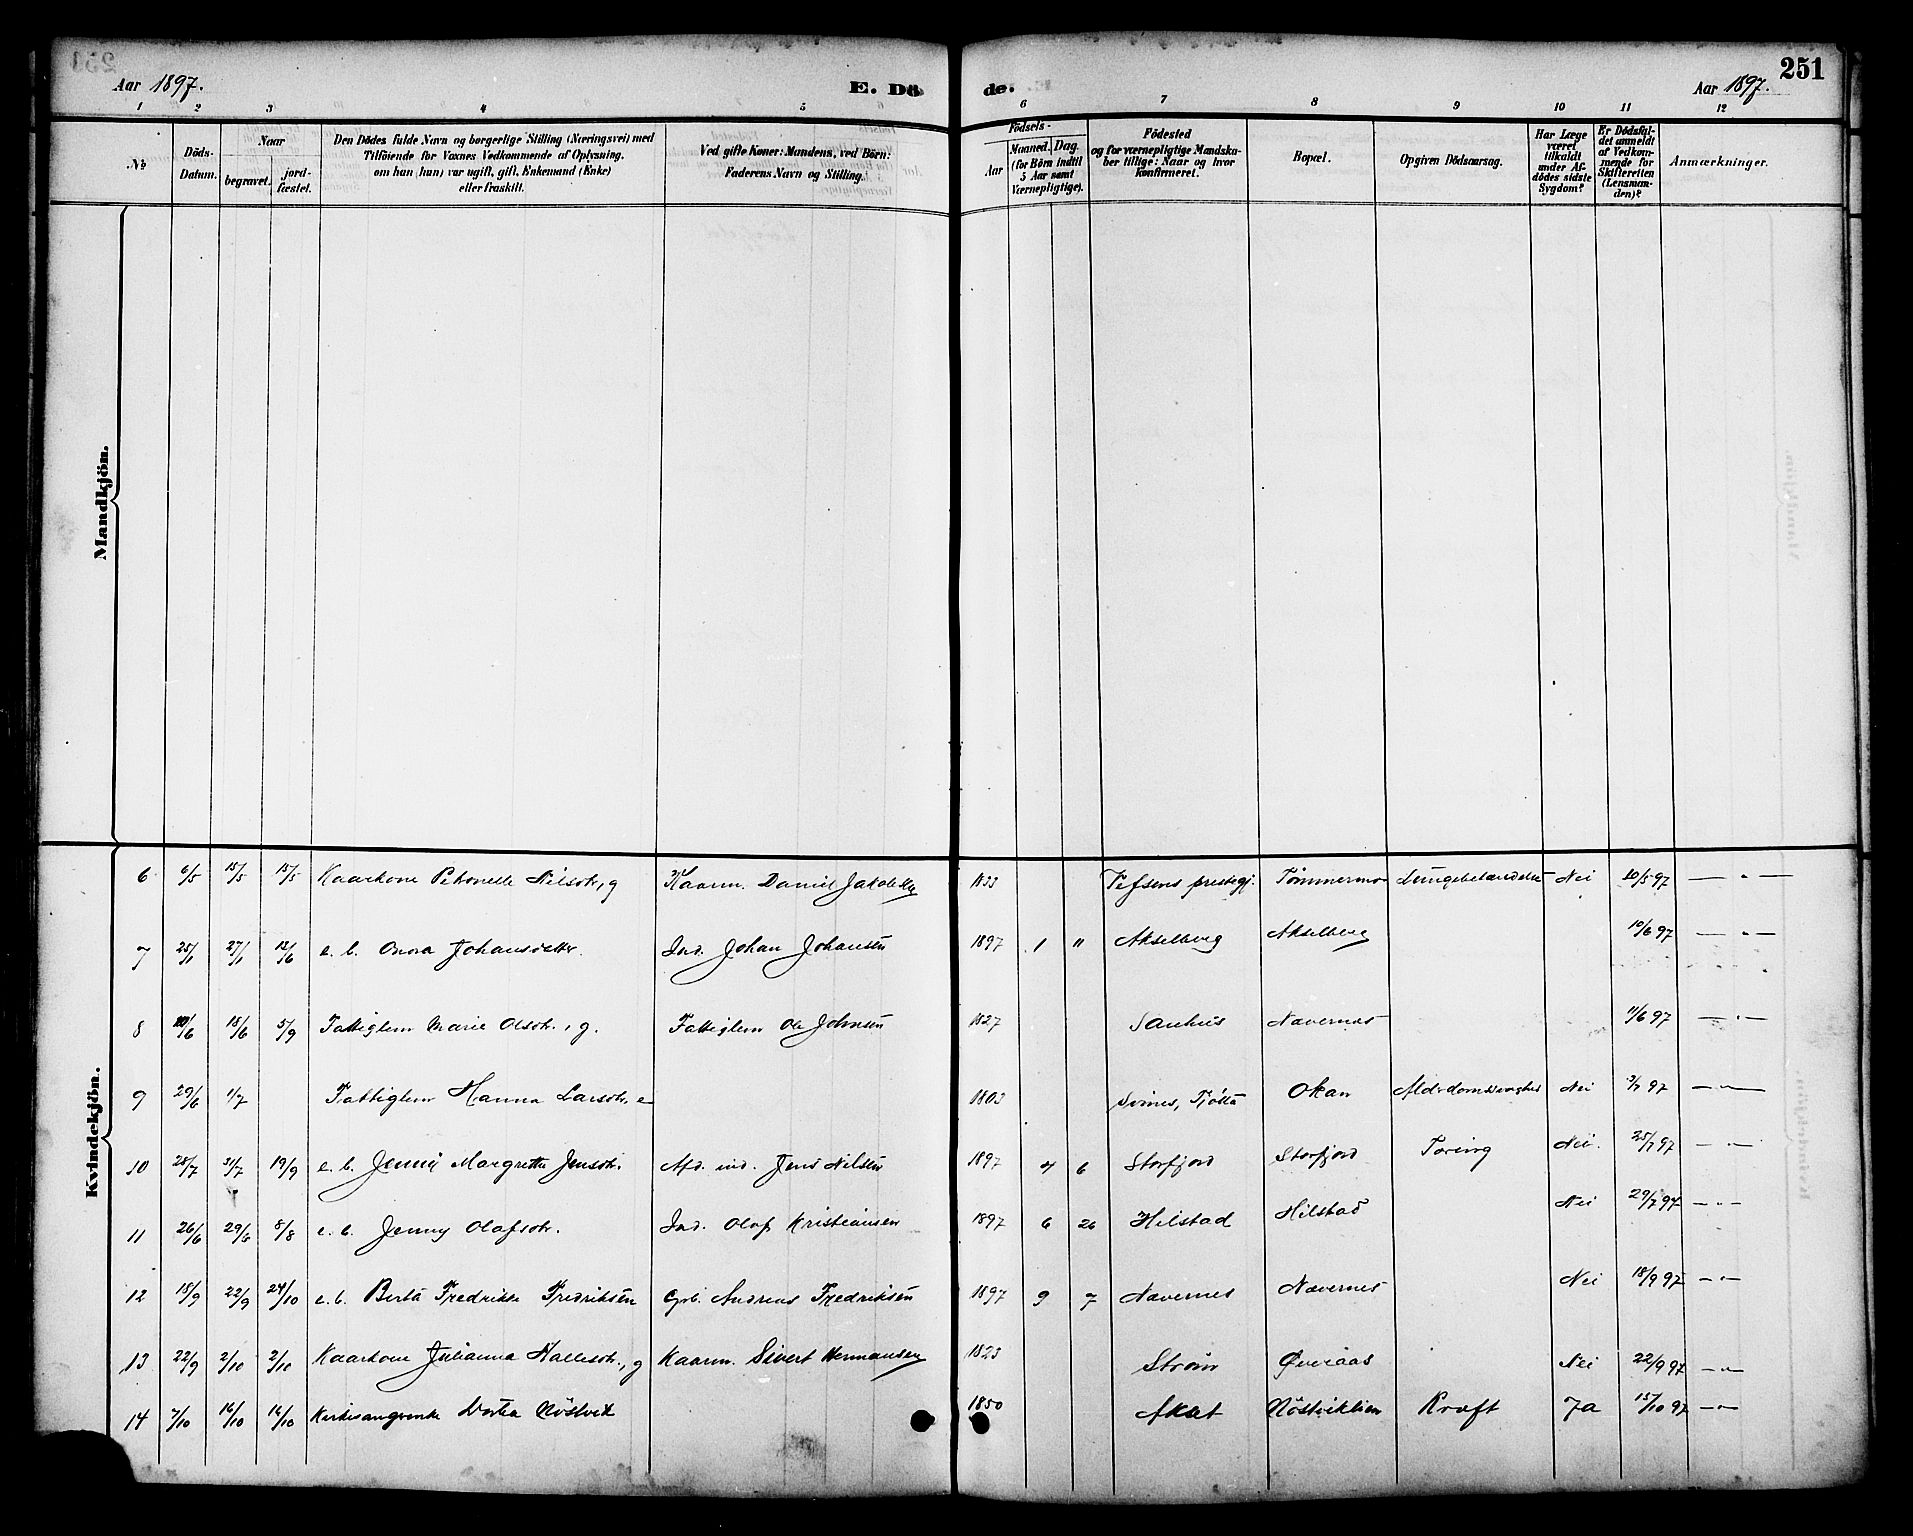 251
Aar 1897. E. Dö de. Aar 1897.
1 2 3 4 5 6 7 8 9 10 11 12
No
Döds-Datum.
Naar
begravet. jord-fæstet.
Den Dödes fulde Navn og borgerlige Stilling (Næringsvei) med
Tilföiende for Voxnes Vedkommende af Oplysning,
om han (hun) var ugift, gift, Enkemand (Enke)
eller fraskilt.
Ved gifte Koner: Mandens, ved Börn:
Faderens Navn og Stilling.
Födsels-
Aar Maaned. Dag.
(for Börn indtil
5 Aar samt
Værnepligtige).
Födested
og for værnepligtige Mandska-
ber tillige: Naar og hvor
konfirmeret.
Bopæl.
Opgiven Dödsaarsag.
Har Læge
været
tilkaldt
under Af-
dödes sidste
Sygdom?
Er Dödsfal-
det anmeldt
af Vedkom-
mende for
Skifteretten
(Lensman-
den)?
Anmærkninger.
Mandkjön.
Kvindekjön.
6 6/5 15/5 15/5 Kaarkone Petronelle Nilsdtr, g Kaarm. Daniel Jakobsen 1833 Vefsens prestegj. Tømmermo Lungebetændelse Nei 10/5 97 — " —
7 25/1 27/1 12/6 e. b. Onora Johansdatter. Ind. Johan Johansen 1897 1 " Akselberg Akselberg 10/6 97 — " —
8 10/6 18/6 5/9 Fattiglem Marie Olsdtr., g. Fattiglem Ole Johnsen 1827 Sauhus Nævernes 11/6 97 — " —
9 29/6 1/7 Fattiglem Hanna Larsdtr. e 1803 Svines, Tjøtta Okan Alderdomssvaghed Nei 3/7 97 — " —
10 28/7 31/7 19/9 e. b. Jenny Margrethe Jensdtr. Afd. ind. Jens Nilsen 1897 4 6 Storfjord Storfjord Tæring Nei. 25/7 97 — " —
11 26/6 29/6 8/8 e. b. Jenny Olafsdtr. Ind. Olaf Kristiansen 1897 6 26 Hilstad Hilstad Nei 29/7 97 — " —
12 18/9 22/9 24/10 e. b. Berta Fredrikke Fredriksen Gbr. Andreas Fredriksen 1897 9 7 Nævernes Nævernes Nei 18/9 97 — " —
13 22/9 2/10 2/10 Kaarkone Julianna Hallesdtr., g Kaarm. Sivert Hermansen 1823 Strøm Øveraas Nei 22/9 97 — " —
14 7/10 16/10 16/10 Kirkesangerenke Dortea Nöstvik 1850 Nöstviklien Kræft Ja 15/10 97 — " —